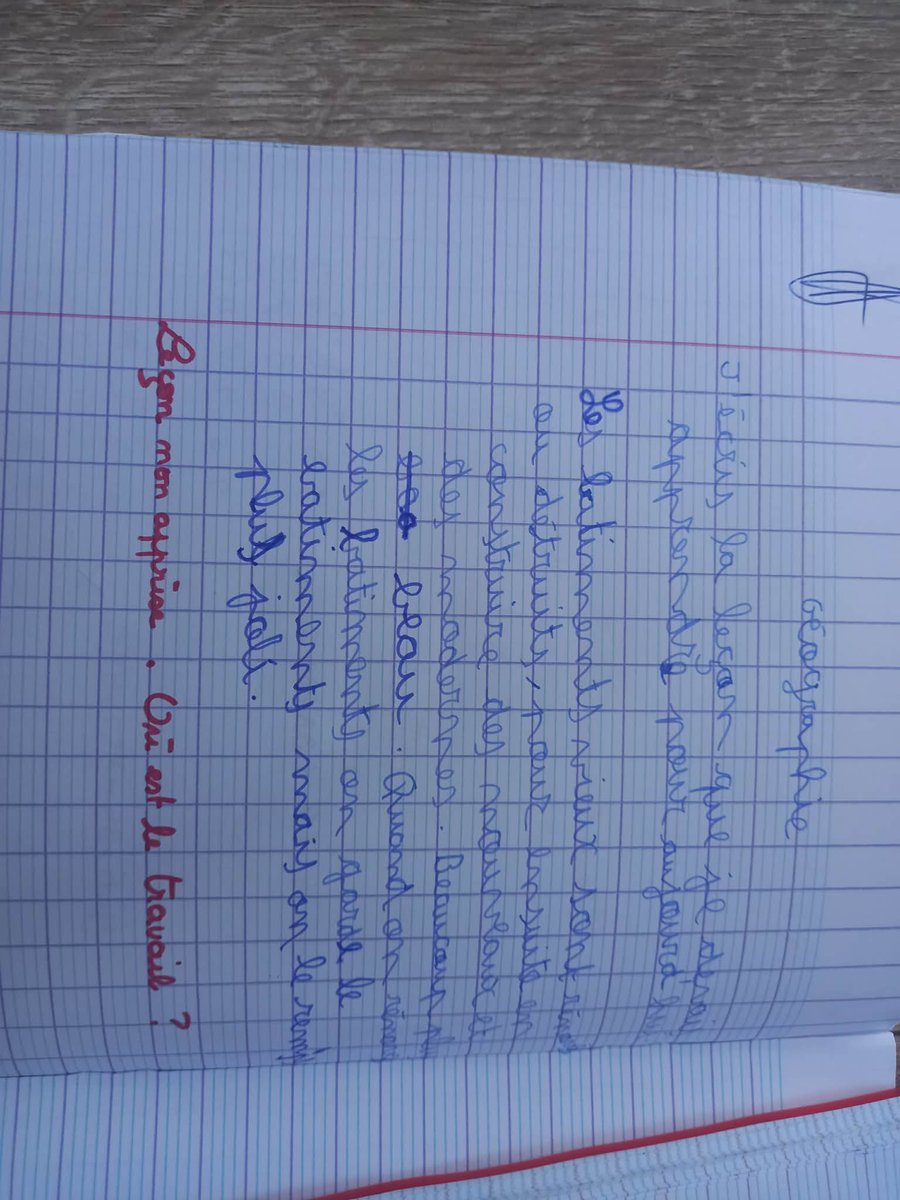 Géographie
J'écris la leçon que je devai
apprendre pour aujourd hui
Les batiments vieux sont rénov
ou détruits, pour ensuite en
construire des nouveaux et
des modernes. Beaucoup plu
beau. Quand on rénov
les batiments on garde le
batiments mais on le rend
plus joli.
Leçon non apprise. Où est le travail ?